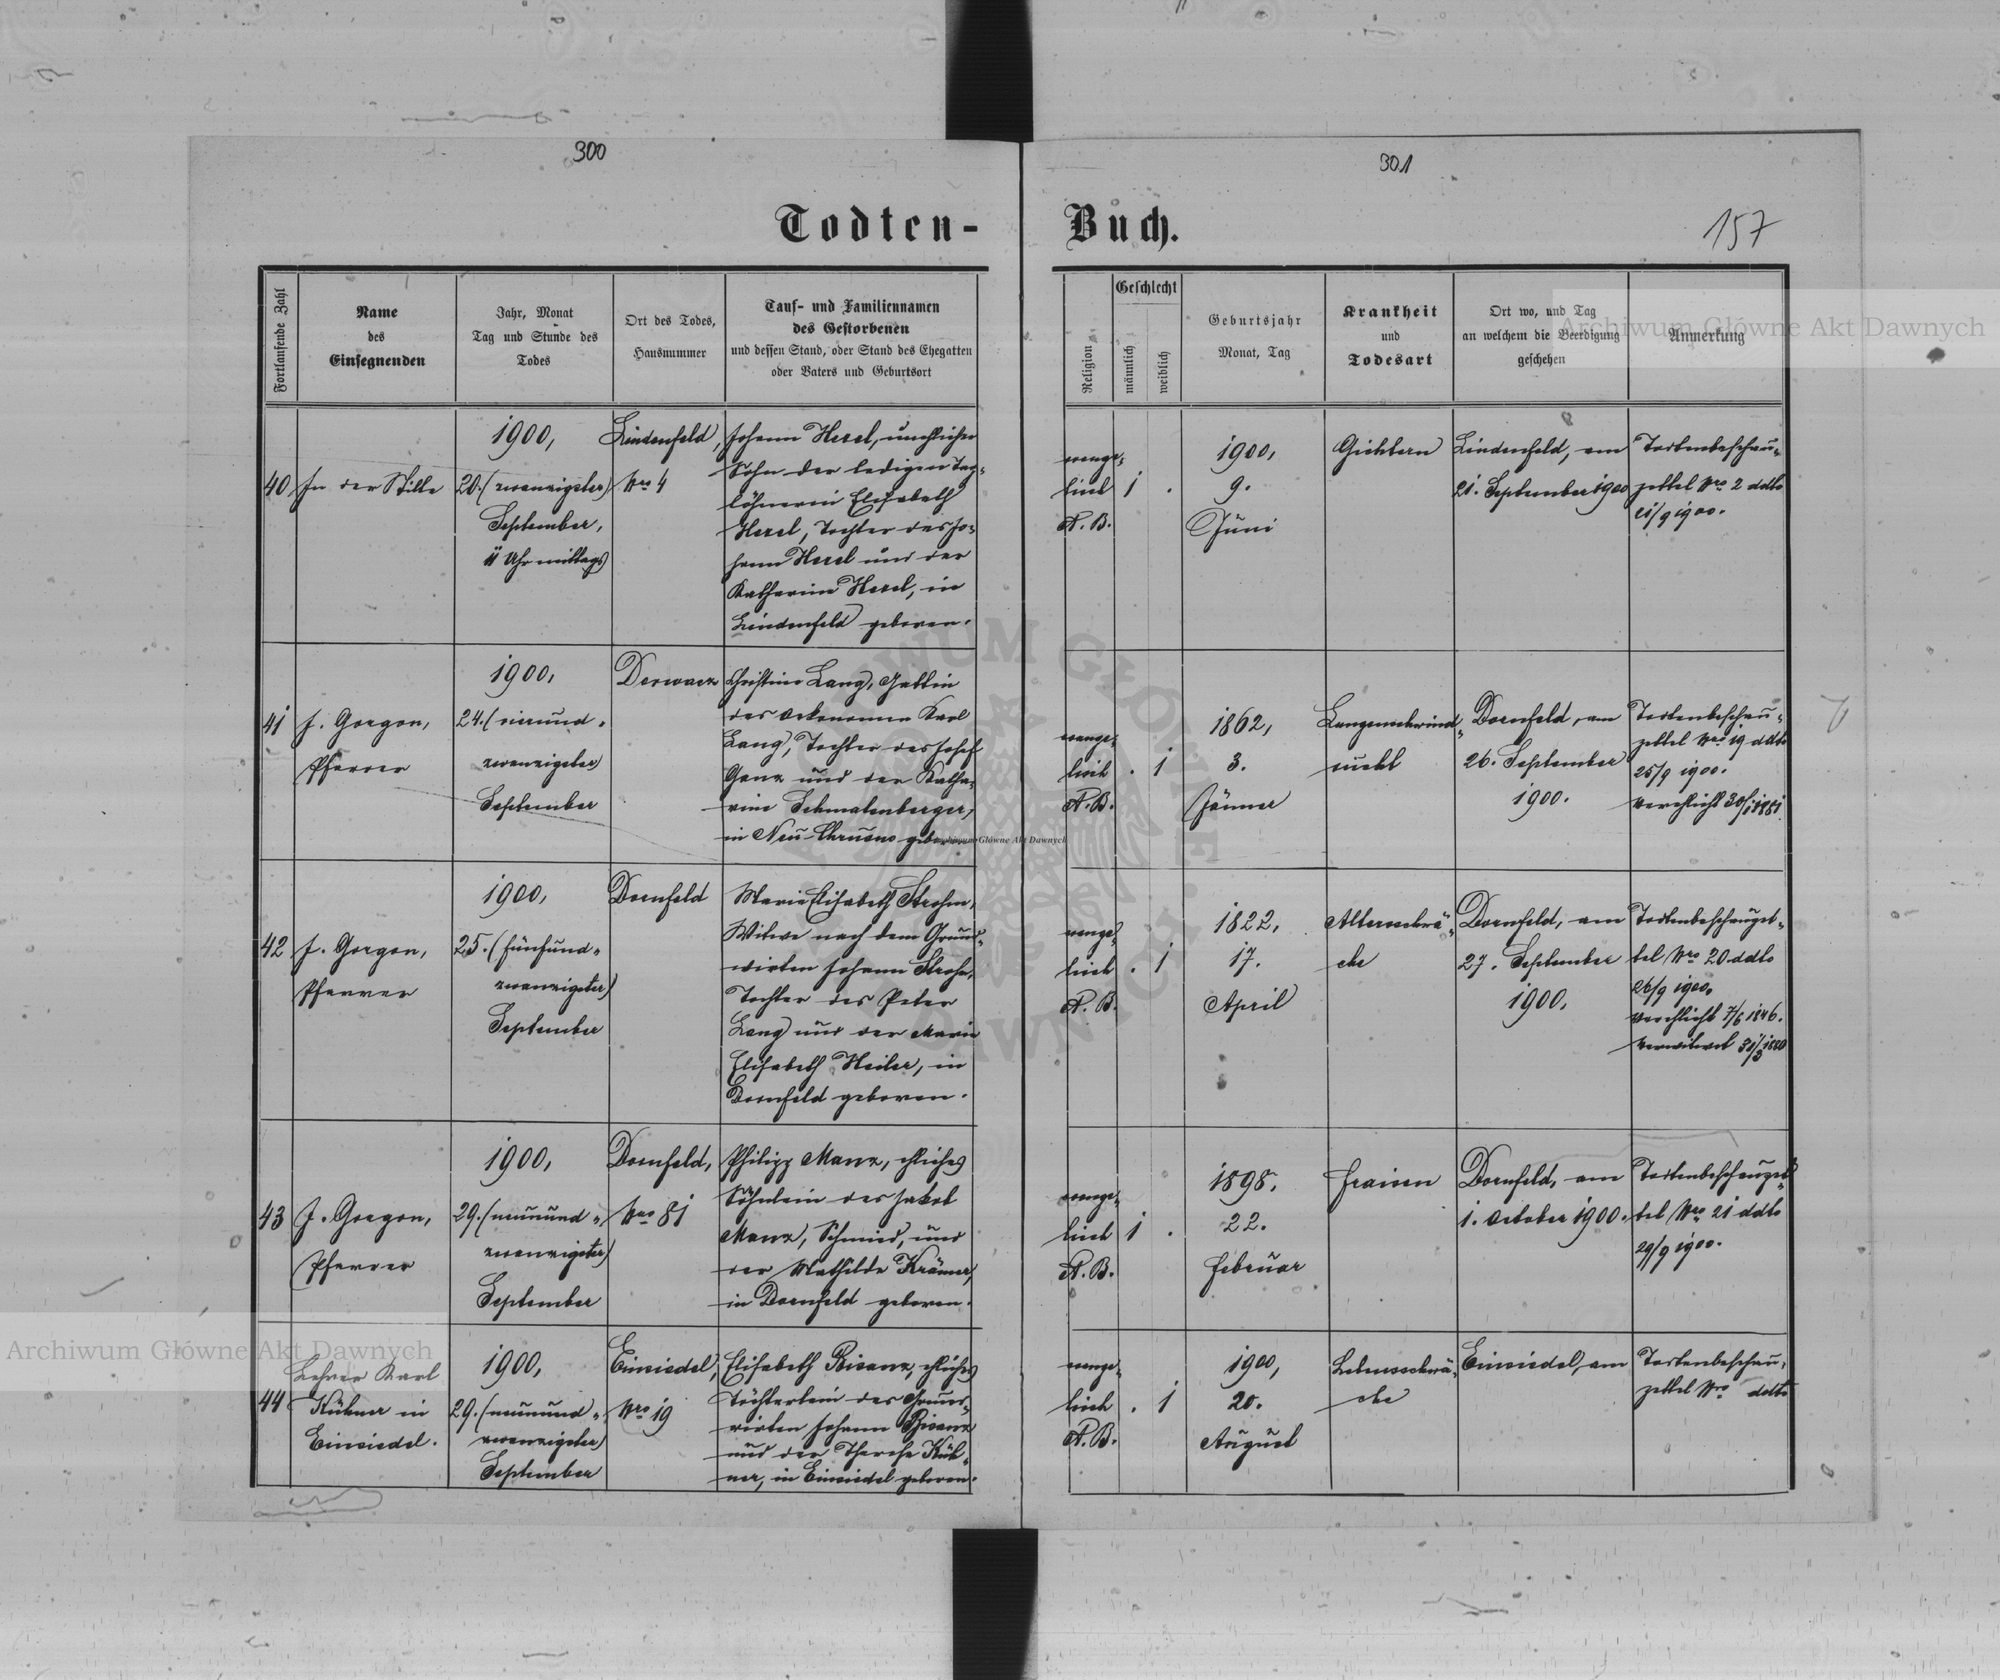 300
301
Todten-Buch.
157
Fortlaufende Zahl
Name
des
Einsegnenden
Jahr, Monat
Tag und Stunde des
Todes
Ort des Todes,
Hausnummer
Tauf- und Familiennamen
des Gestorbenen
und dessen Stand, oder Stand des Ehegatten
oder Vaters und Geburtsort
Religion
Geschlecht
männlich
weiblich
Geburtsjahr
Monat, Tag
Krankheit
und
Todesart
Ort wo, und Tag
an welchem die Beerdigung
geschehen
Anmerkung
Archiwum Główne Akt Dawnych
40
In der Stille
1900,
20. (zwanzigster)
September,
11 Uhr mittags
Lindenfeld,
Nro 4
Johann Hesel, unehlicher
Sohn der ledigen Tag-
löhnerin Elisabeth
Hesel, Tochter des Jo-
hann Hesel und der
Katharina Hesel, in
Lindenfeld geboren.
evange-
lisch
A. B.
1
.
1900,
9.
Juni
Gichtern
Lindenfeld, am
21. September 1900
Todtenbeschau-
zettel Nro 2 ddto
21/9 1900.
41
J. Gorgon,
Pfarrer
1900,
24. (vierund-
zwanzigster)
September
Derwacz
Christine Lang, Gattin
des Oekonomen Karl
Lang, Tochter des Josef
Ganz und der Katha-
rine Schmalenberger,
in Neu-Chrusno geboren
evange-
lisch
A. B.
. 1
1862,
3.
Jänner
Lungenschwind-
sucht
Dornfeld, am
26. September
1900.
Todtenbeschau-
zettel Nro 19 ddto
25/9 1900.
verehlicht 30/1 1881.
42
J. Gorgon,
Pfarrer
1900,
25. (fünfund-
zwanzigster)
September
Dornfeld
Marie Elisabeth Strohm,
Witwe nach dem Grund-
wirten Johann Strohm,
Tochter des Peter
Lang und der Marie
Elisabeth Heiler, in
Dornfeld geboren.
evange-
lisch
A. B.
. 1
1822,
17.
April
Altersschwä-
che
Dornfeld, am
27. September
1900.
Todtenbeschauzet-
tel Nro 20 ddto
26/9 1900.
verehlicht 7/6 1846.
verwitwet 31/3 1880
43
J. Gorgon,
Pfarrer
1900,
29. (neunund-
zwanzigster)
September
Dornfeld,
Nro 81
Philipp Manz, ehliches
Söhnlein des Jakob
Manz, Schmied, und
der Mathilde Krämer,
in Dornfeld geboren.
evange-
lisch
A. B.
1 .
1898.
22.
Februar
Fraisen
Dornfeld, am
1. October 1900.
Todtenbeschauzet-
tel Nro 21 ddto
29/9 1900.
44
Lehrer Karl
Kühner in
Einsiedel.
1900,
29. (neunund-
zwanzigster)
September
Einsiedel,
Nro 19
Elisabeth Bisanz, ehliches
Töchterlein des Grund-
wirten Johann Bisanz
und der Therese Küh-
ner, in Einsiedel geboren.
evange-
lisch
A. B.
. 1
1900,
20.
August
Lebensschwä-
che
Einsiedel, am
Todtenbeschau-
zettel Nro ddto
Archiwum Główne Akt Dawnych
Archiwum Główne Akt Dawnych